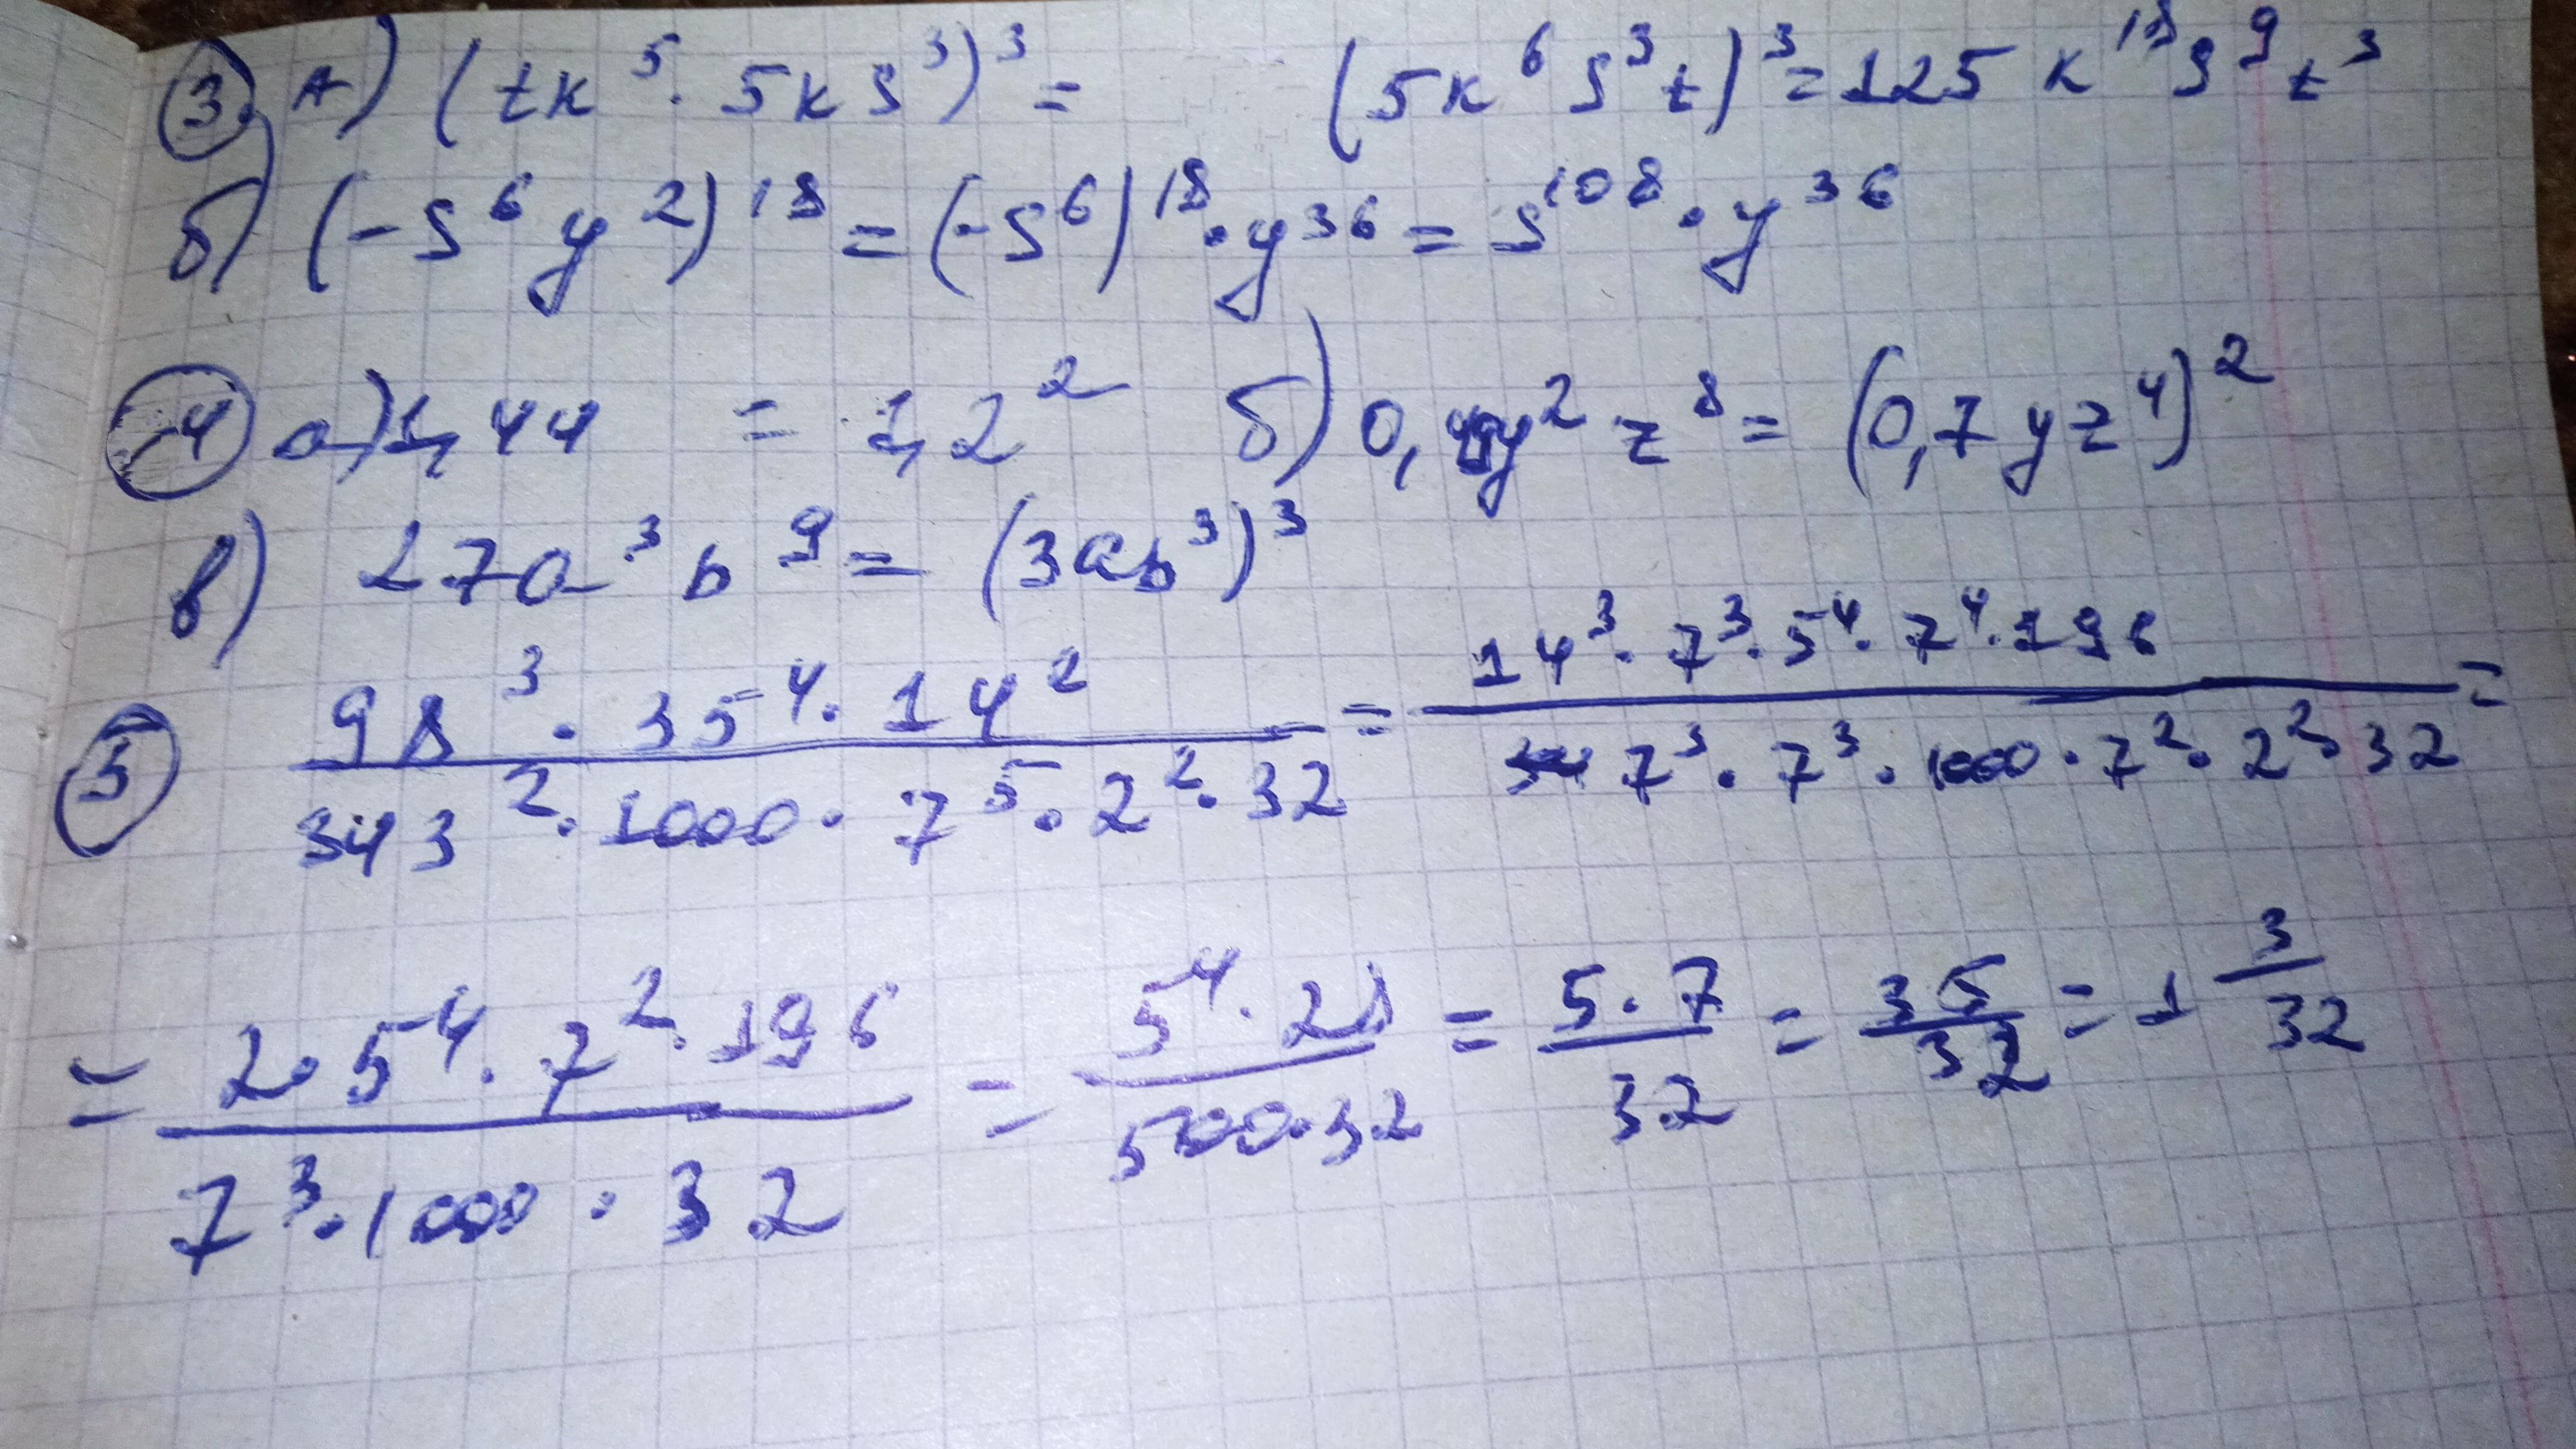 3. А) (tk⁵ · 5ks³)³ = (5k⁶s³t)³ = 125k¹⁸s⁹t³
б) (-s⁶y²)¹⁸ = (-s⁶)¹⁸ · y³⁶ = s¹⁰⁸ · y³⁶
4 а) 1,44 = 1,2² б) 0,49y²z⁸ = (0,7yz⁴)²
в) 27a³b⁹ = (3ab³)³
5 98³ · 35⁴ · 14² / 343² · 1000 · 7⁵ · 2² · 32 = 14³ · 7³ · 5⁴ · 7⁴ · 196 / 7³ · 7³ · 1000 · 7² · 2² · 32 =
= 2 · 5⁴ · 7² · 196 / 7³ · 1000 · 32 = 5⁴ · 28 / 500 · 32 = 5 · 7 / 32 = 35/32 = 1 3/32